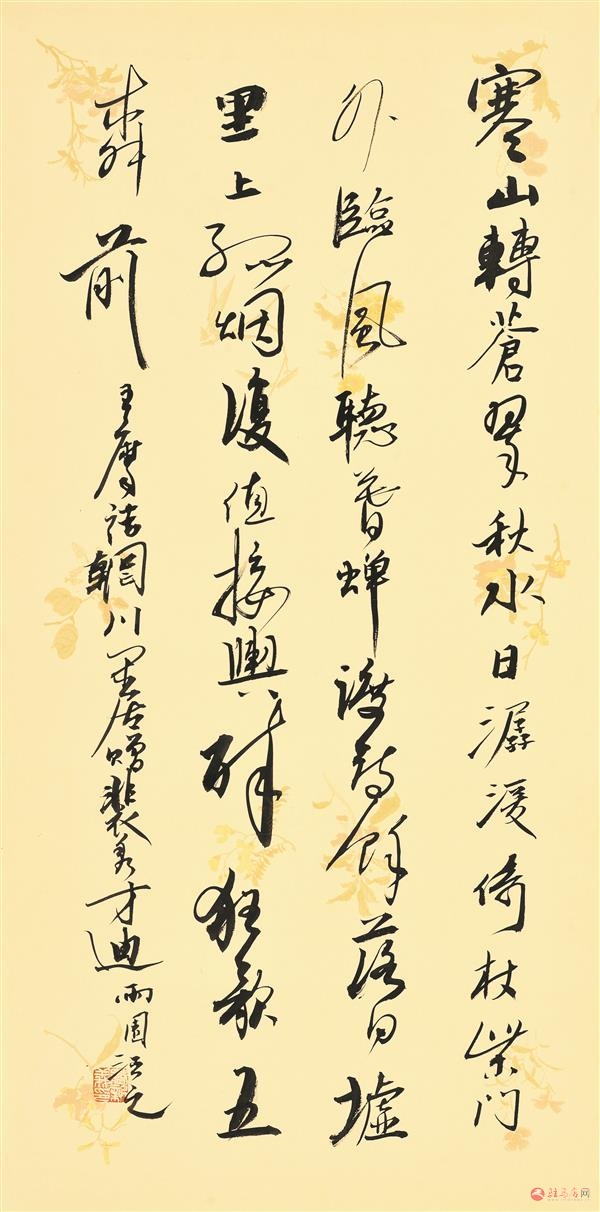 寒山轉蒼翠秋水日潺湲倚杖柴門
外臨風聽暮蝉渡头餘落日墟
里上孤烟復值接輿醉狂歌五
柳前
王摩詰輞川閒居贈裴秀才迪雨園
驻马店网